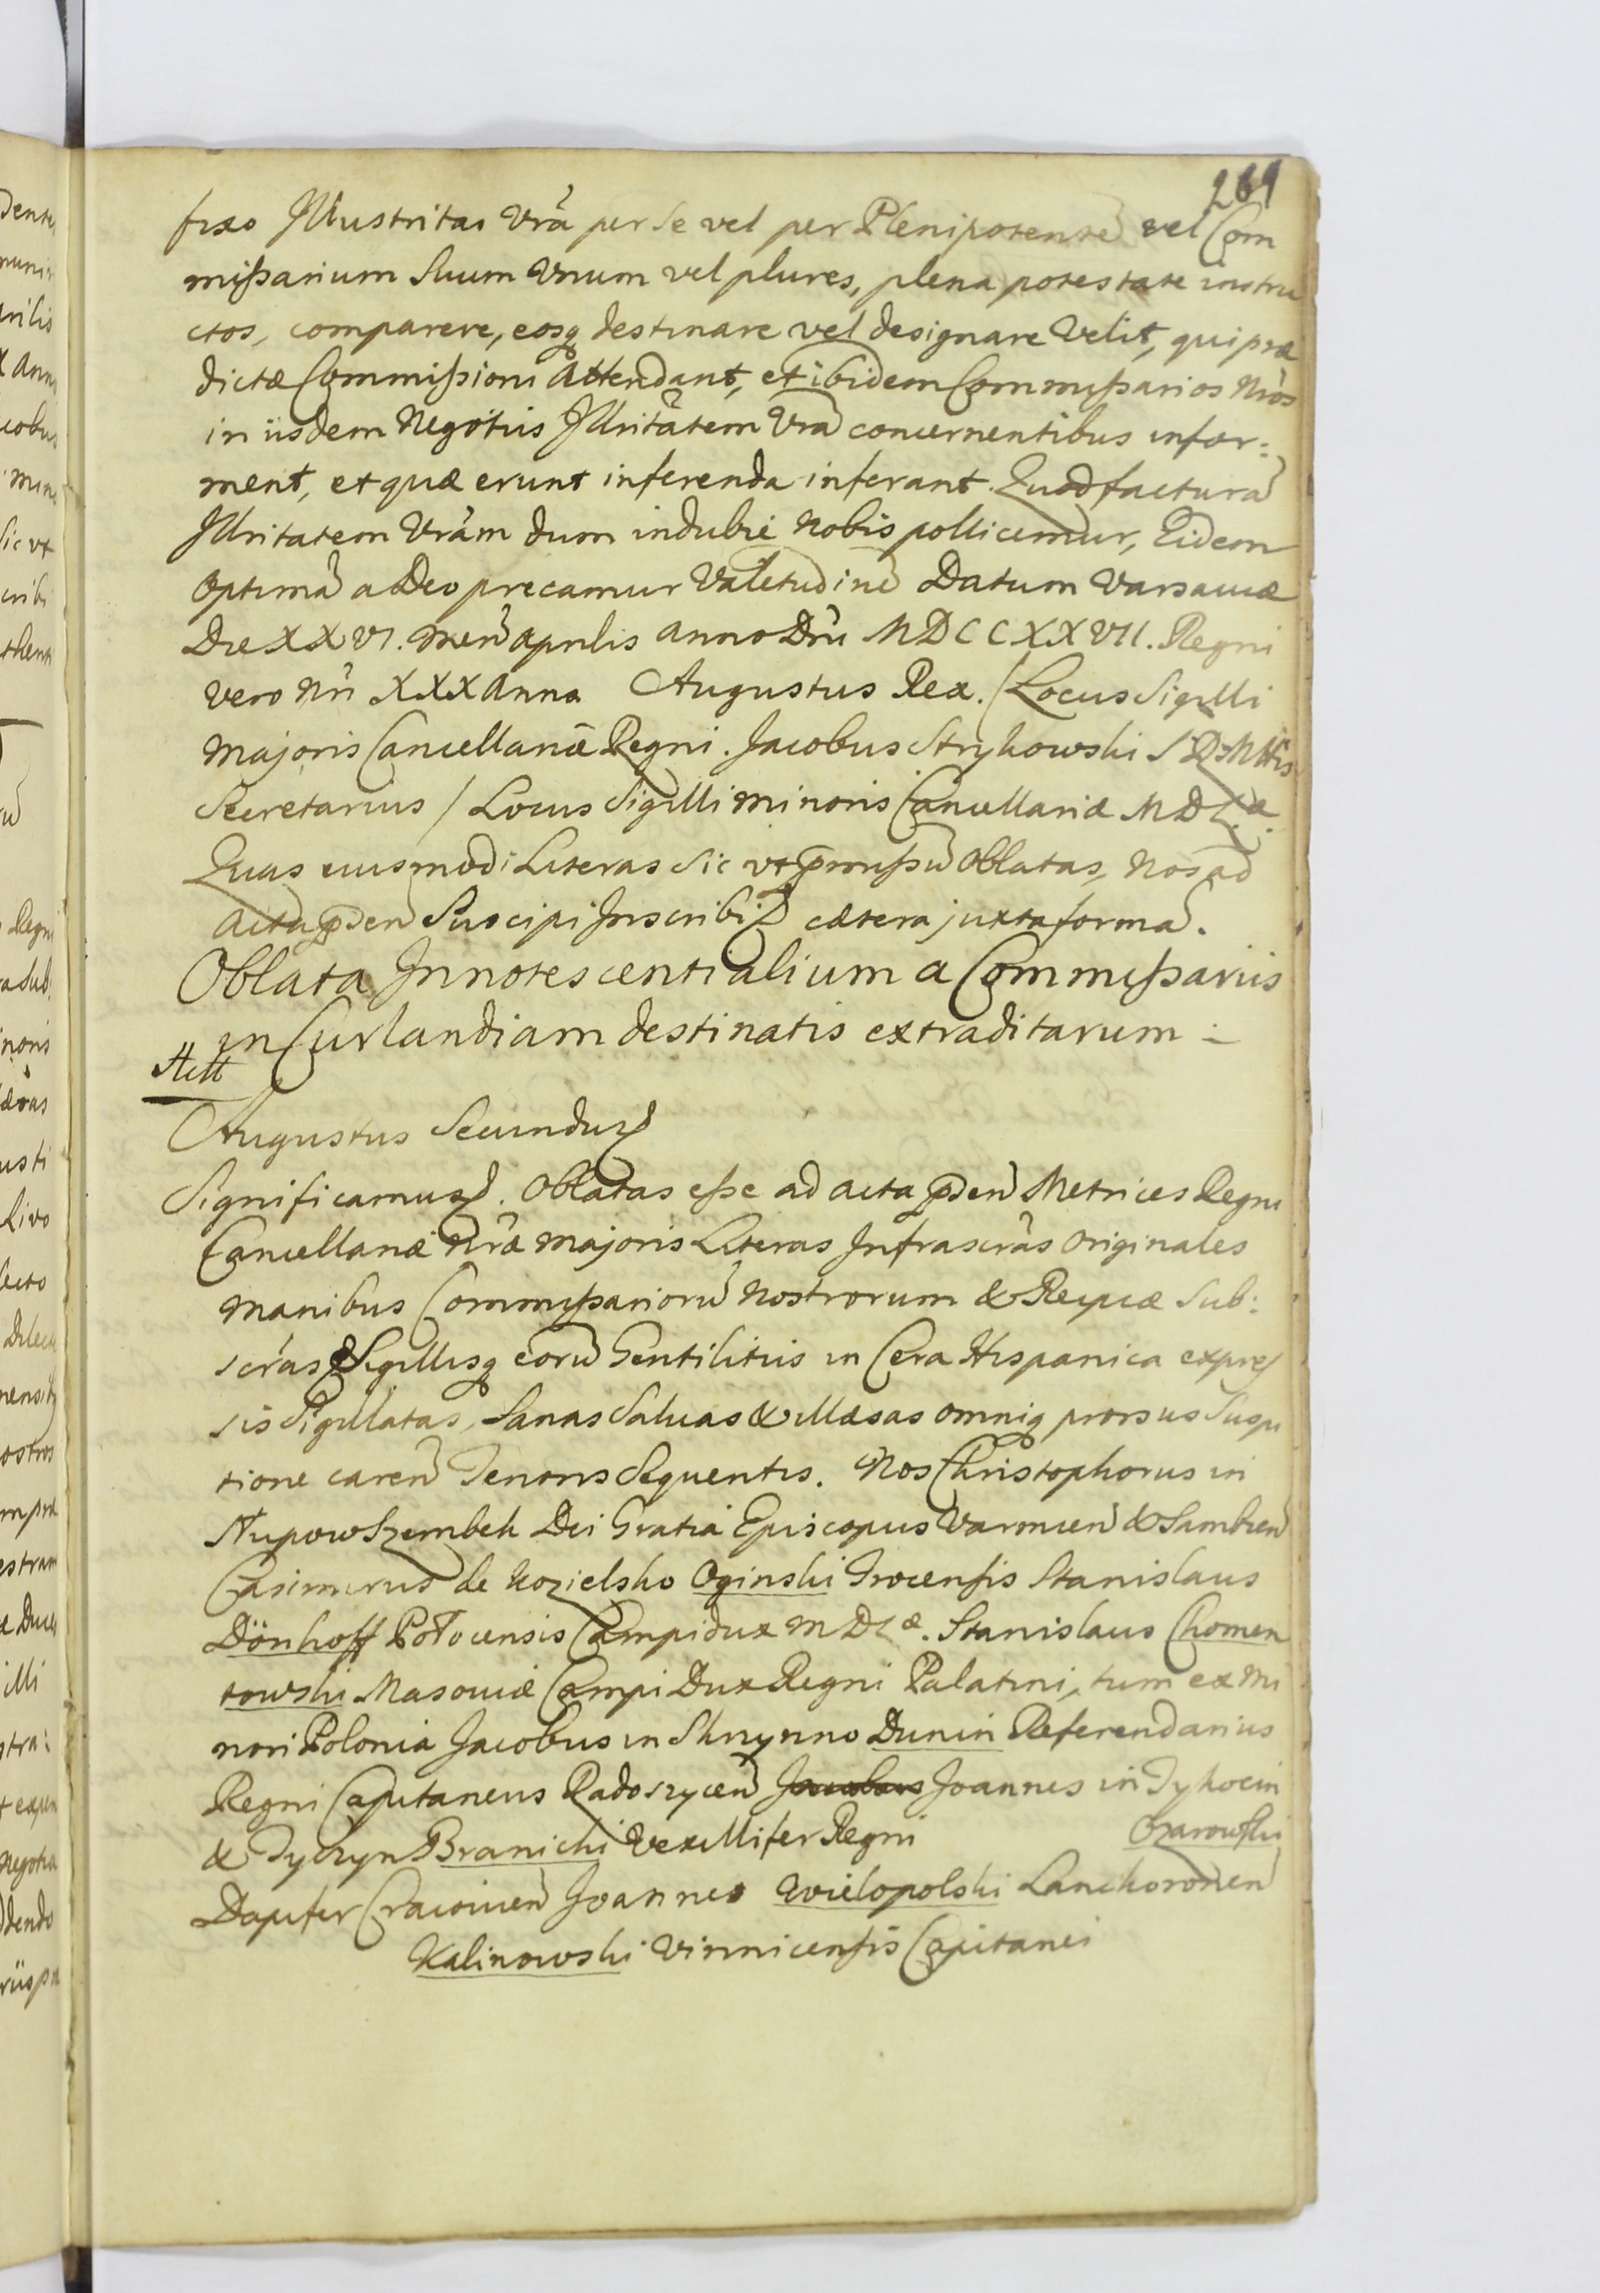 269
fixo Jllustritas Vrã per Se vel per Plenipotentẽ vel Com
mißarium Suum Vnum vel plures, plena potestate instru
ctos, comparere, eosq destinare vel designare Velit, qui præ
dictæ Commißioni Attendant, et ibidem Commißarios Nros
in iisdem Negotiis Jllritatem Vrã concernentibus infor:
ment, et quæ erunt inferenda inferant. Quod facturã
Jllritatem Vrãm dum indubiè Nobis pollicemur, Eidem
Optimã a Deo precamur Valetudinẽ Datum Varsaviæ
Die XXVI. Men̄ Aprilis Anno Dn̄i MDCCXXVII. Regni
vero Nr̄i XXX Anno Augustus Rex. (Locus Sigilli
Majoris Cancellariæ Regni. Jacobus Strykowski S R Mttis
Secretarius / Locus Sigilli minoris Cancellariæ M D L.æ
Quas eiusmodi Literas Sic vt p̄mißũ Oblatas, Nos ad
Acta p̄sen̄ Suscipi Jnscribiq cætera juxta formã.
Oblata Jnnotescentialium a Commißariis
in Curlandiam destinatis extraditarum :
Augustus Secundus
Significamus. Oblatas eße ad Acta p̄sen̄ Metrices Regni
Cancellariæ Nræ Majoris Literas Jnfrascrãs Originales
Manibus Commißariorũ Nostrorum & Reipcæ Sub:
scrãs Sigillisq eorũ Gentilitiis in Cera Hispanica expres
sis Sigillatas, Sanas Salvas & illæsas omniq prorsus Suspi
tione caren̄ Tenoris Sequentis. Nos Christophorus in
Słupow Szembek Dei Gratia Episcopus Varmien̄ & Sambien̄
Casimirus de Kozielsko Oginski Trocensis Stanislaus
Dönhoff Polocensis Campidux M D L æ. Stanislaus Chomen
towski Masoviæ Campi Dux Regni Palatini, tum ex Mi
nori Polonia Jacobus in Skrzynno Dunin Referendarius
Regni Capitaneus Radoszycen̄ Jacobus Joannes in Tykocin
& Tyczyn Branicki Vexillifer Regni Ozarowski
Dapifer Cracovien̄ Joannes Wielopolski Lanckoronen̄
Kalinowski Vinnicensis Capitanei